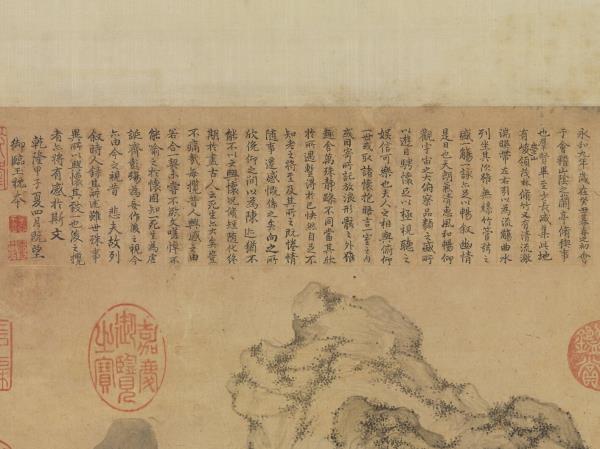 永和九年歲在癸丑暮春之初會
于會稽山陰之蘭亭脩稧事
也羣賢畢至少長咸集此地
有崇山峻領茂林脩竹又有清流激
湍暎帶左右引以為流觴曲水
列坐其次雖無絲竹管絃之
盛一觴一詠亦足以暢叙幽情
是日也天朗氣清惠風和暢仰
觀宇宙之大俯察品類之盛所
以遊目騁懷足以極視聽之
娛信可樂也夫人之相與俯仰
一世或取諸懷抱晤言一室之內
或因寄所託放浪形骸之外雖
趣舍萬殊靜躁不同當其欣
於所遇暫得於己快然自足不
知老之將至及其所之既惓情
隨事遷感慨係之矣向之所
欣俛仰之間以為陳迹猶不
能不以之興懷況脩短隨化終
期於盡古人云死生亦大矣豈
不痛哉每攬昔人興感之由
若合一契未嘗不臨文嗟悼不
能喻之於懷固知一死生為虛
誕齊彭殤為妄作後之視今
亦由今之視昔 悲夫故列
叙時人錄其所述雖世殊事
異所以興懷其致一也後之攬
者亦將有感於斯文
乾隆甲子夏四月既望
御臨玉枕本
嘉慶
御覽
之寶